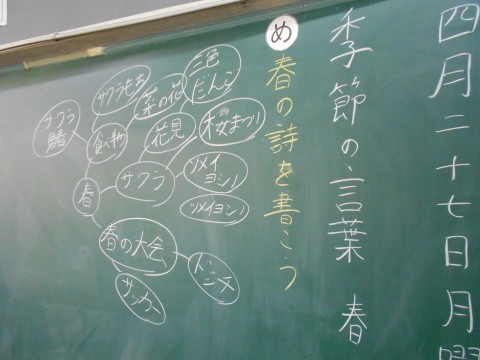 四月二十七日月曜
季節の言葉 春
め 春の詩を書こう
三色だんご
菜の花
サクラもち
桜まつり
花見
食べ物
サクラ鯛
ソメイヨシノ
サクラ
春
ソメイヨシノ
春の大会
ドッジ
サッカー